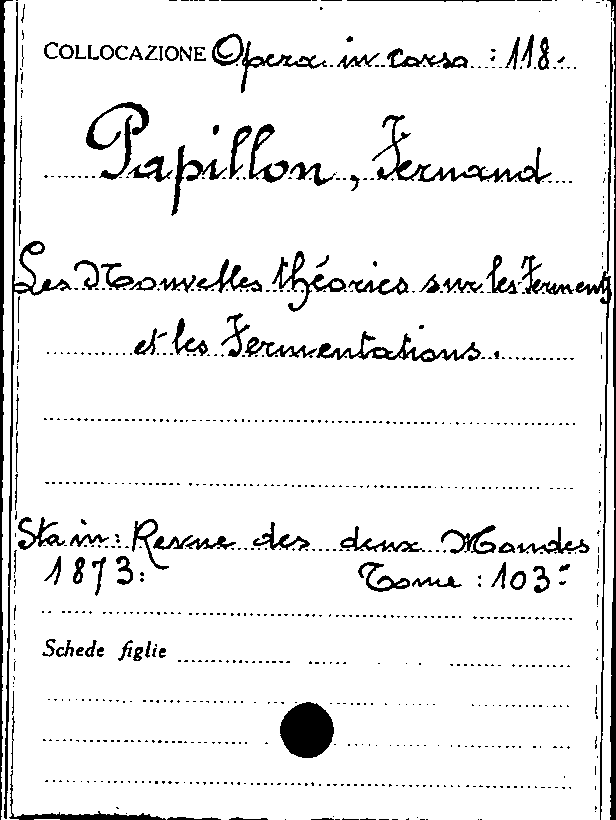 COLLOCAZIONE Opera in corso : 118.
Papillon, Fernand
Les Nouvelles théories sur les Ferments
et les Fermentations.
Sta in: Revue des deux Mondes
1873. Tome : 103°
Schede figlie